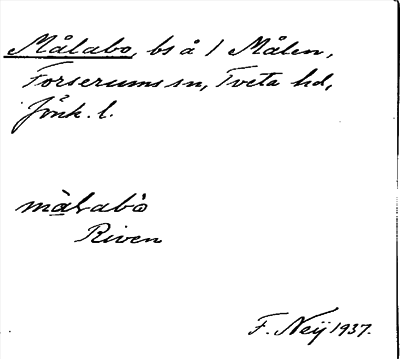 Målabo, bs å / Målen,
Forserums sn, Tveta hd,
Jönk. l.
Riven
F. Neij 1937.